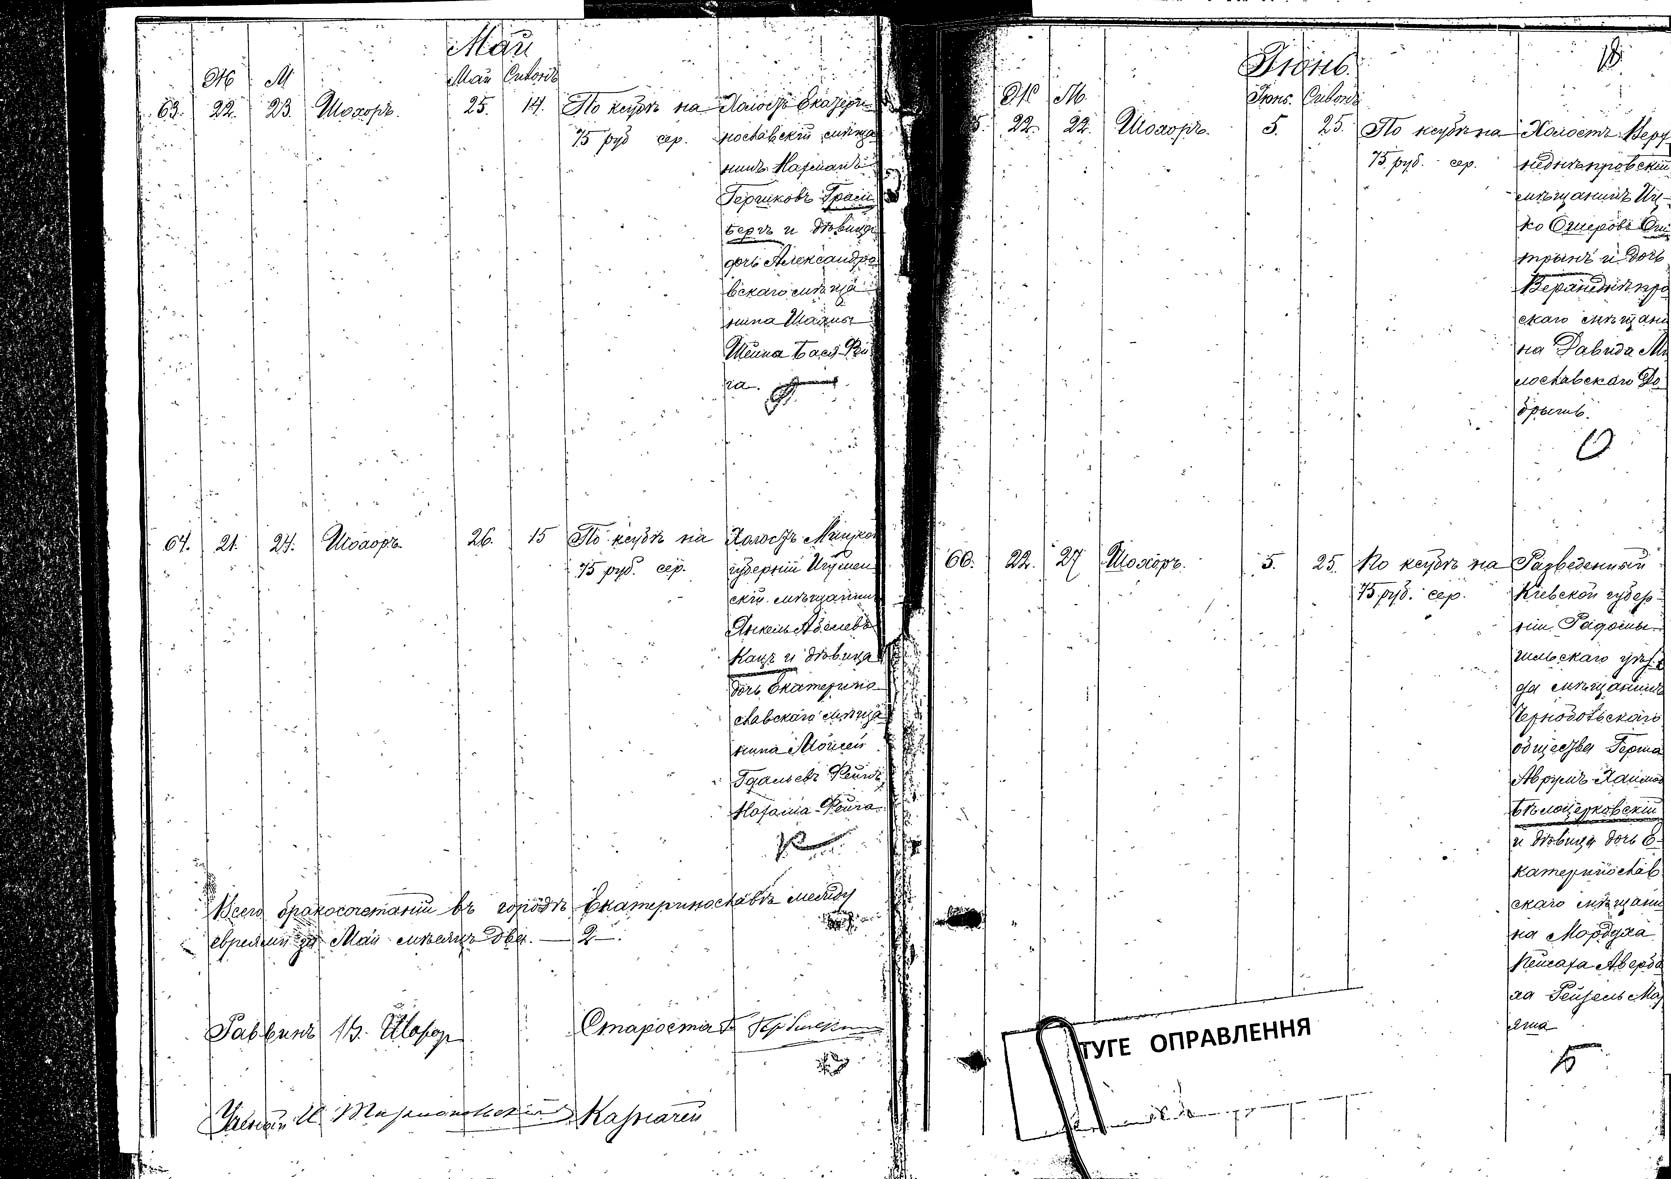 Май
Ж М Май Сивонъ
63. 22. 23. Шохоръ. 25. 14. По ксубѣ на
75 руб сер.
Холостъ Екатери-
нославскій мѣща
нинъ Нарманъ
Гершковъ Грам
бергъ и дѣвица
дочь Александро
вскаго мѣща
нина Шаямы
Шеина Бася-Фи
га.
64. 21. 24. Шохоръ. 26. 15 По ксубѣ на
75 руб. сер.
Холостъ Минской
губерніи Игумен
скій мѣщанинъ
Янкель Абелевъ
Кацъ и дѣвица
дочь Екатерино
славскаго мѣща
нина Мойсей
Гдальевъ
Фейга
Всего бракосочетаній въ городѣ Екатеринославѣ между
евреями за Май мѣсяцъ два. — 2 —.
Раввинъ В. Шохор
Староста Г.
Ученый И Казначей
18
Іюнь.
Ж М. Іюнь. Сивонъ
5. 22. 22. Шохоръ. 5. 25. По ксубѣ на
75 руб. сер.
Холостъ Верх
неднѣпровскій
мѣщанинъ Иц-
ко Ошеровъ Сти
трынъ и дочь
Верхнеднѣпро
скаго мѣщани
на Давида Ми
лославскаго До
брышъ.
66. 22. 27 Шохоръ. 5. 25. По ксубѣ на
75 руб. сер.
Разведенный
Кіевской губер
ніи Радомы
шльскаго уѣз
да мѣщанинъ
Чернобыльскаго
общества Герша
Аврумъ Хаимов
Бѣлоцерковскій
и дѣвица дочь Е-
катеринослав
скаго мѣщани
на Мордуха
Пейсаха Аверба
ха Рейзель Ма
яша
ТУГЕ ОПРАВЛЕННЯ